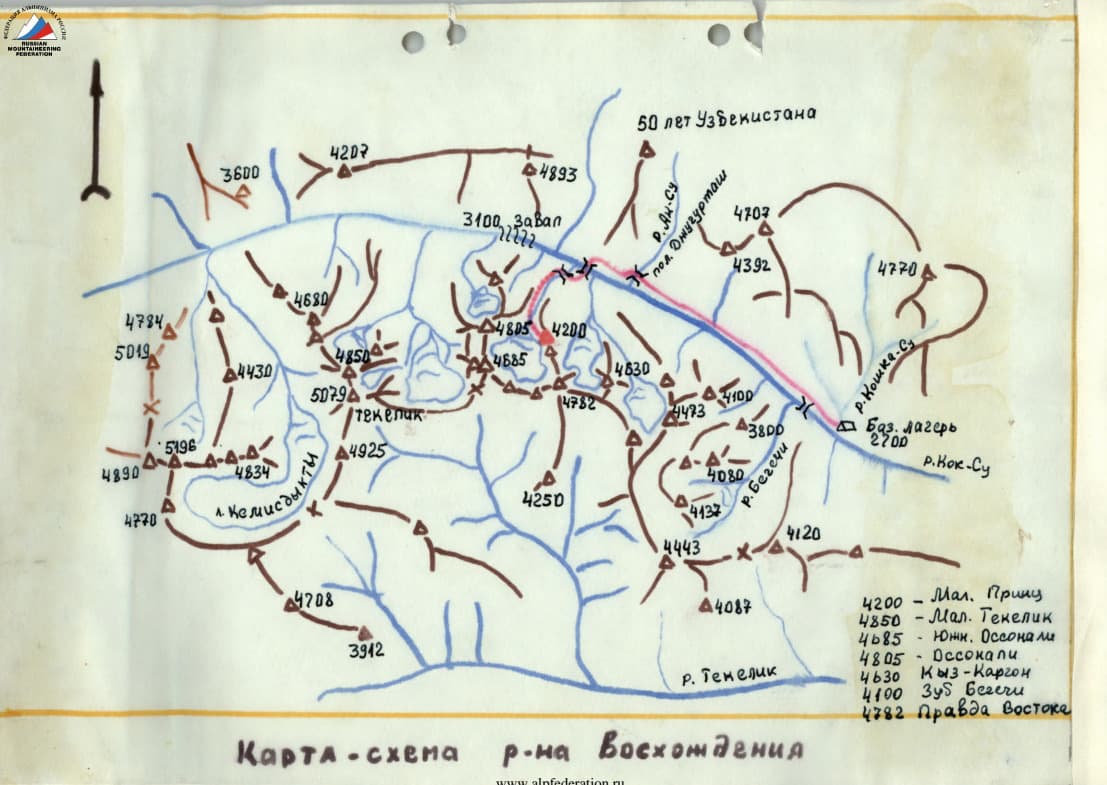 ФЕДЕРАЦИЯ АЛЬПИНИЗМА РОССИИ
RUSSIAN
MOUNTAINEERING
FEDERATION
50 лет Узбекистана
4207
4893
3600
3100 Завал
р. Ак-Су
пол. Джугурташ
4707
4392
4770
4680
4784
5019
4805
4200
4850
4685
4430
4630
5079
Текелик
4782
4473
4100
3800
р. Кошка-Су
Баз. лагерь
2700
р. Кок-Су
4890
5196
4834
4925
4080
р. Бегечи
4250
4137
л. Кемисдыкты
4770
4443
4120
4708
4087
3912
р. Текелик
4200 – Мал. Принц
4850 – Мал. Текелик
4685 - Южн. Оссокали
4805 - Оссокали
4630 Кыз-Каргон
4100 Зуб Бегечи
4782 Правда Востока
Карта-схема р-на Восхождения
www.alpfederation.ru